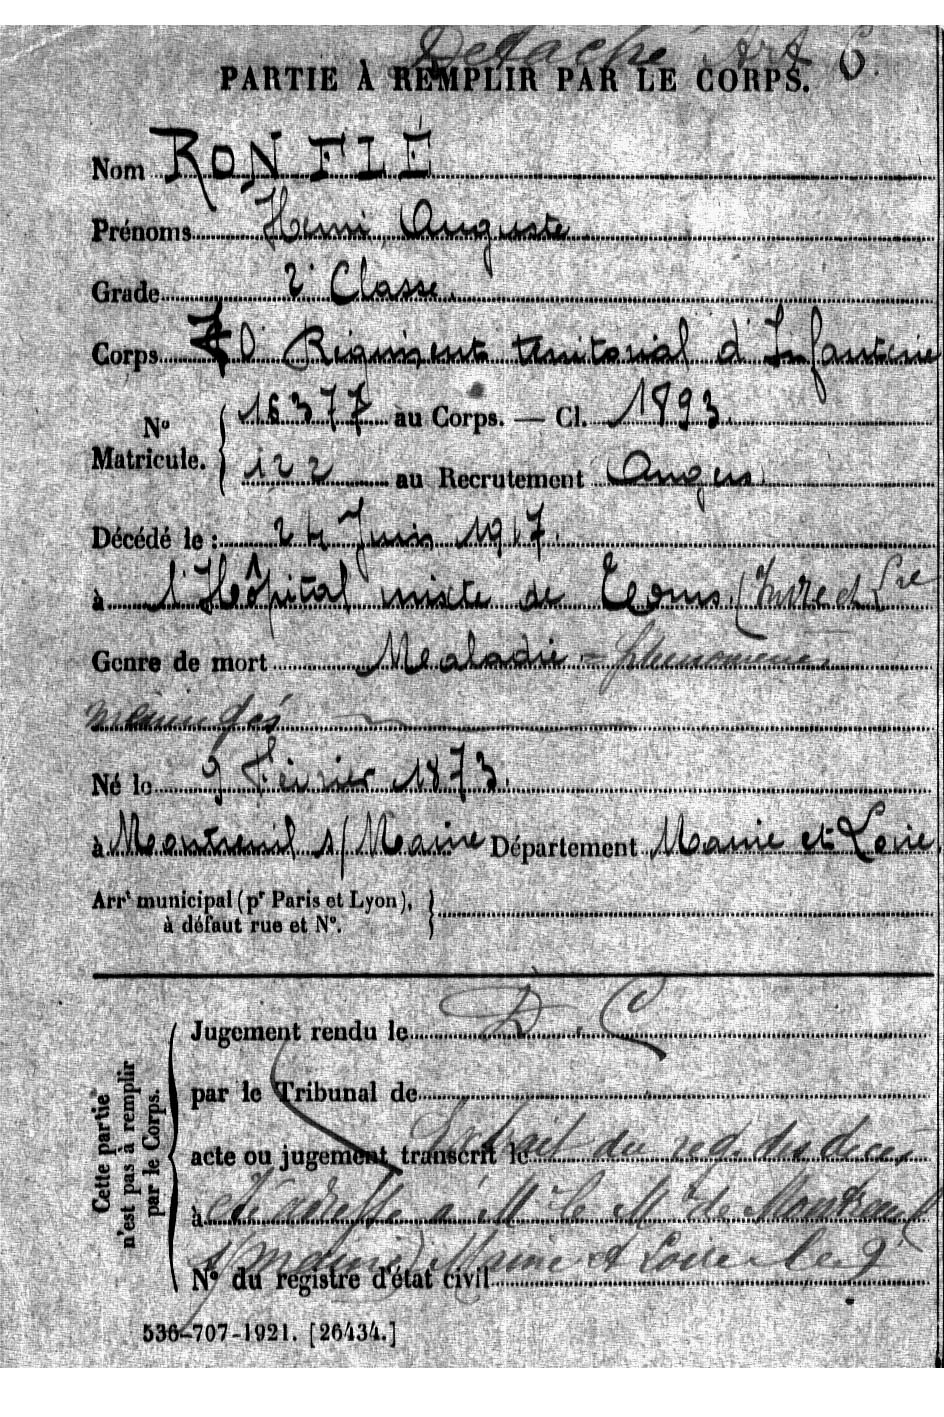 Detaché Art 6.
PARTIE À REMPLIR PAR LE CORPS.
Nom RONFLÉ
Prénoms Henri Auguste
Grade 2e Classe.
Corps 70 Régiment territorial d'Infanterie
No Matricule. { 16377 au Corps. — Cl. 1893.
122 au Recrutement Angers
Décédé le : 24 Juin 1917.
à l'Hôpital mixte de Tours (Indre et Lre
Genre de mort Maladie - phénomènes
méningés
Né le 9 Février 1873.
à Montreuil s/ Maine Département Maine et Loire
Arrt municipal (pr Paris et Lyon), }
à défaut rue et No.
Cette partie
n'est pas à remplir
par le Corps.
Jugement rendu le D.C
par le Tribunal de
acte ou jugement transcrit le Extrait du reg. des décès
à été adressé à Mr le M de Montreuil
s/ maine) Maine et Loire le 9
No du registre d'état civil
536-707-1921. [26434.]